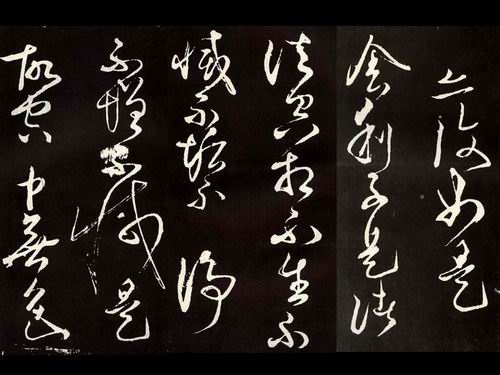 亦復如是
舍利子是諸
法空相不生不
滅不垢不淨
不增不減是
故空中無色